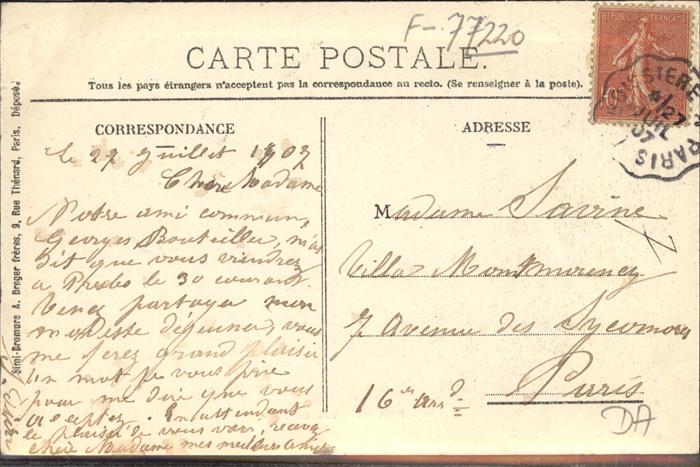 F- 77220
CARTE POSTALE.
Tous les pays étrangers n'acceptent pas la correspondance au recto. (Se renseigner à la poste).
RÉPUBLIQUE FRANÇAISE
10
27
JUIL
07
PARIS
Simi-Bromure A. Breger frères, 9, Rue Thénard, Paris. Déposé.
CORRESPONDANCE
Le 27 Juillet 1907
Chère Madame
Notre ami commun,
Georges Bouteiller, m'a
dit que vous viendrez
à le 30 courant.
Venez partager mon
modeste déjeuner, vous
me ferez grand plaisir
Un mot je vous prie
pour me dire que vous
acceptez. En attendant
le plaisir de vous voir, recevez
chère Madame mes meilleurs
ADRESSE
Madame Savine
Villa Montmorency
7 Avenue des Sycomores
16e arrd Paris
DA